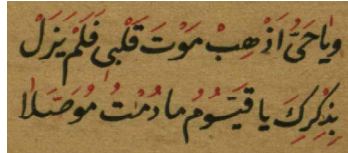 وَيَا حَيُّ اَذْهِبْ مَوْتَ قَلْبِي فَلَمْ يَزَلْ
بِذِكْرِكَ يَا قَيُّومُ مَا دُمْتُ مُوَصَّلَا